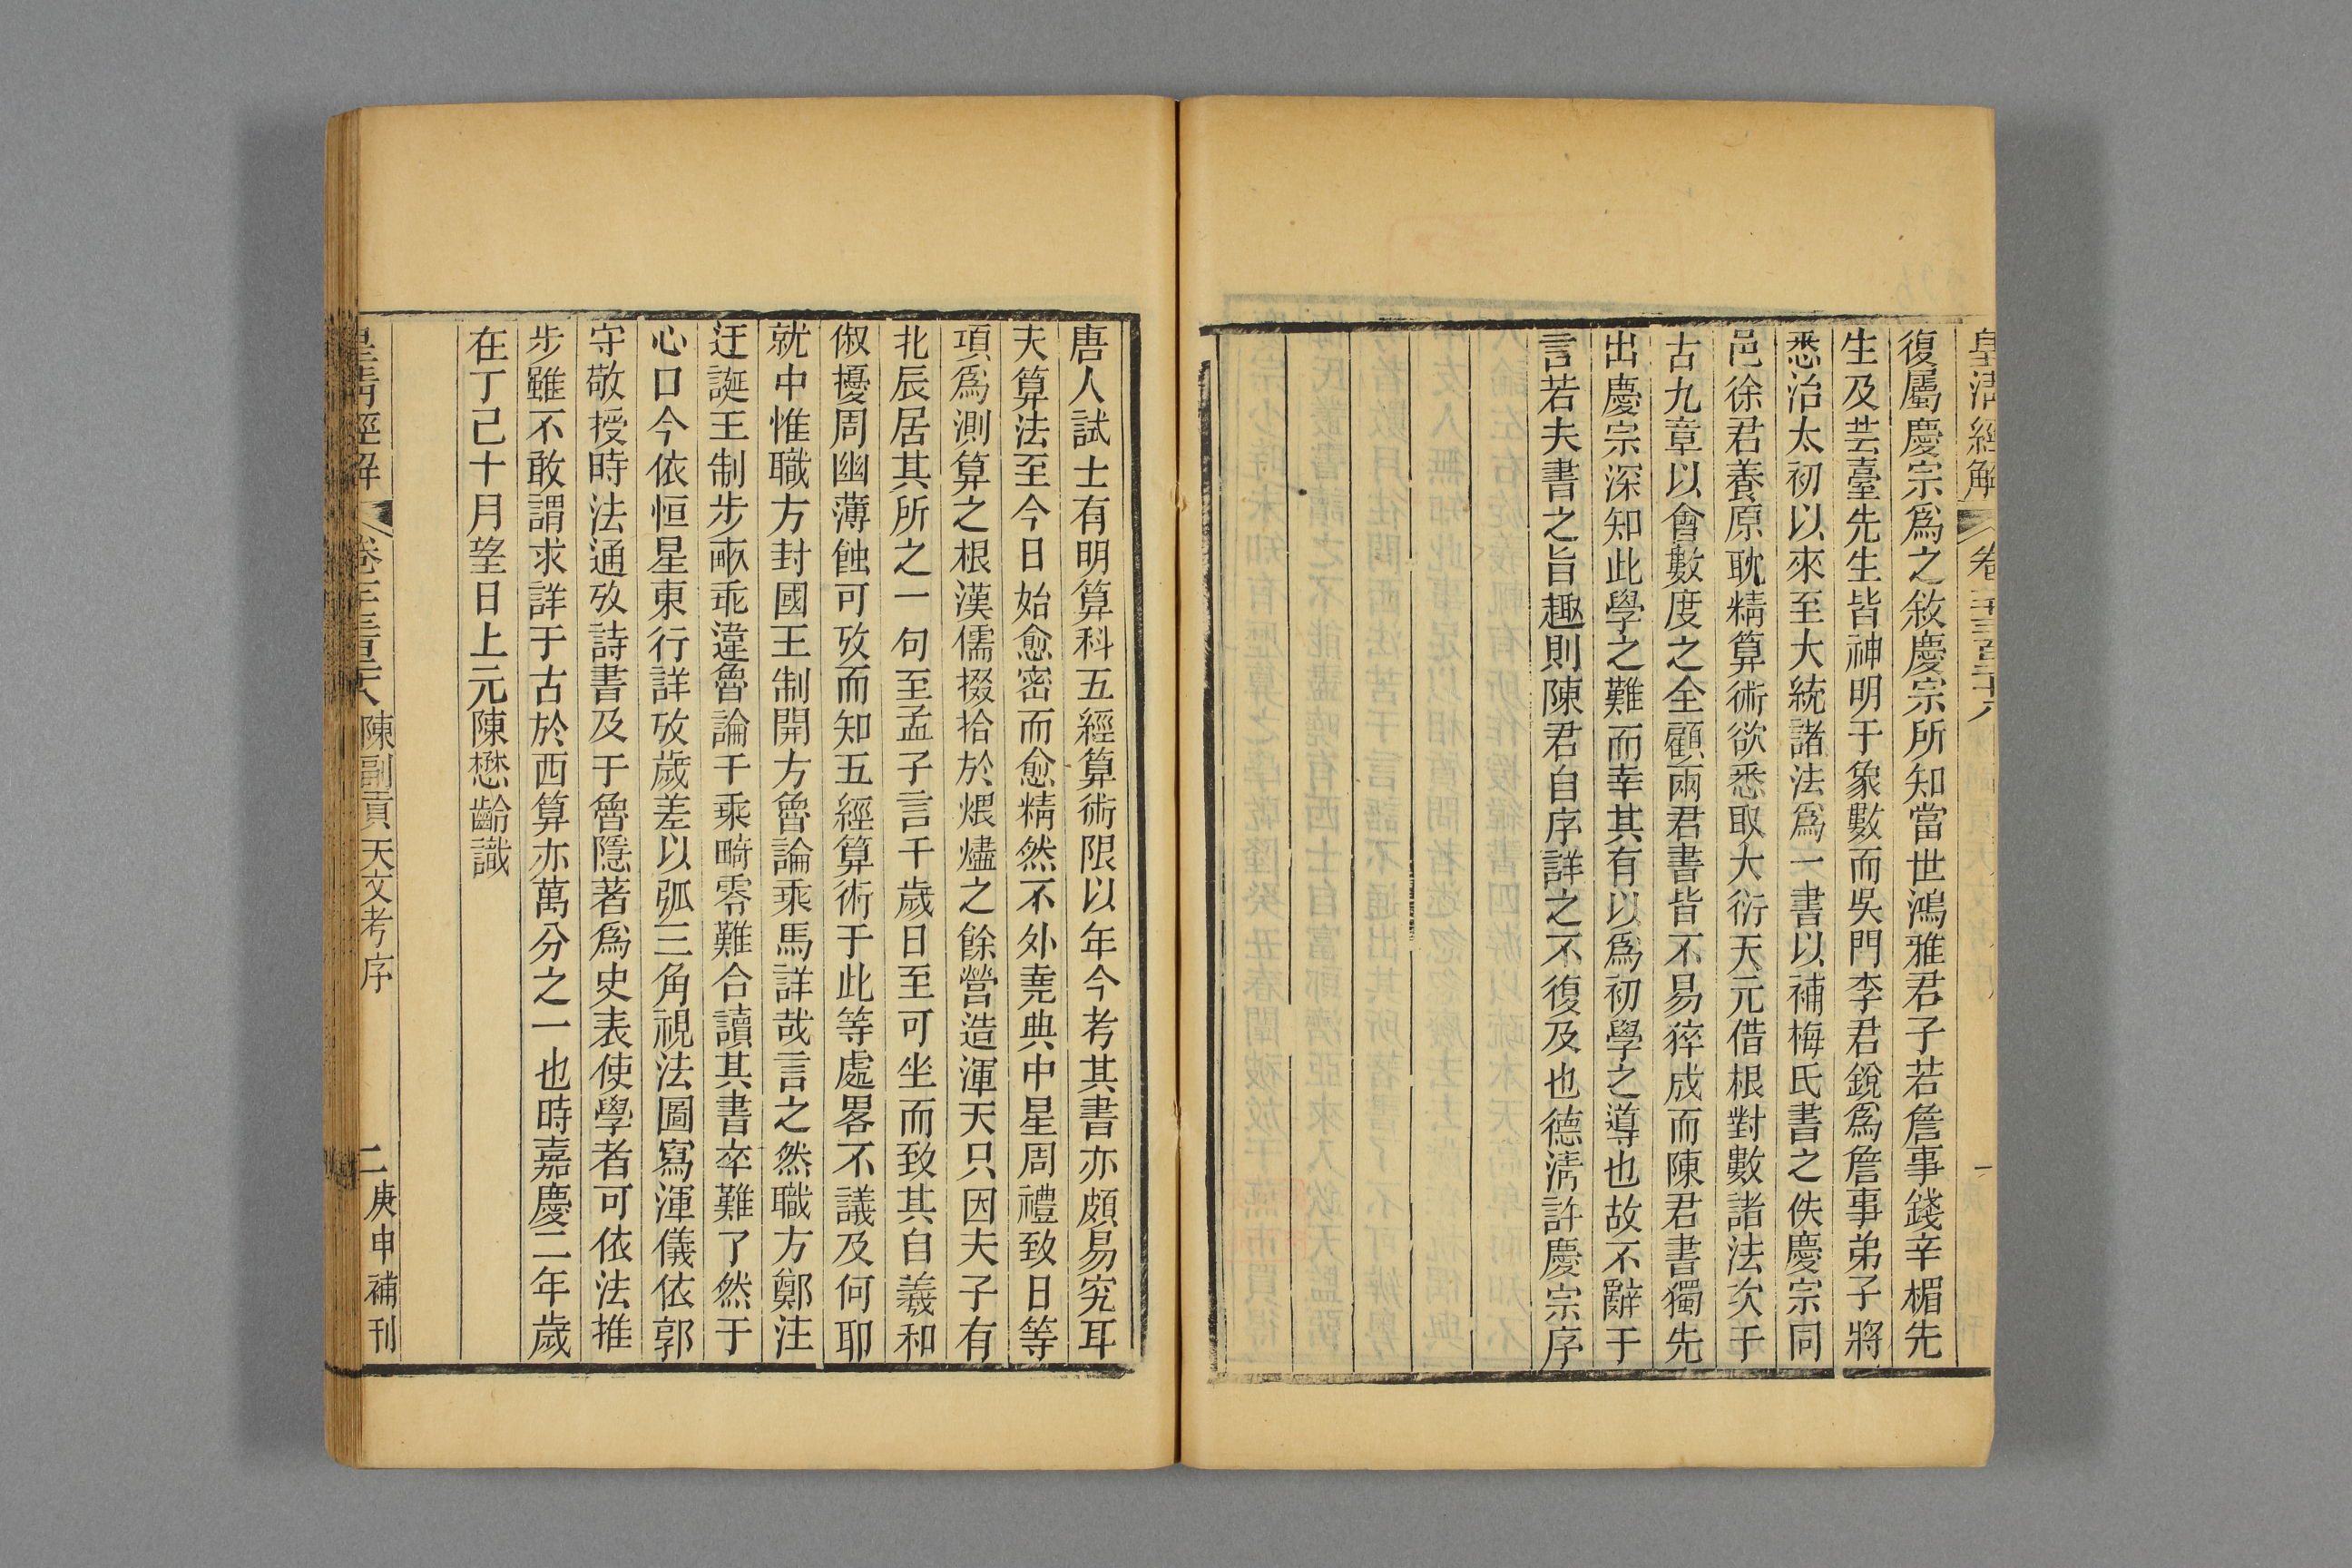 皇清經解 卷一千三百二十八 一
復屬慶宗爲之敘慶宗所知當世鴻雅君子若詹事錢辛楣先
生及芸臺先生皆神明于象數而吳門李君銳爲詹事弟子將
悉治太初以來至大統諸法爲一書以補梅氏書之佚慶宗同
邑徐君養原耽精算術欲悉取大衍天元借根對數諸法次于
古九章以會數度之全顧兩君書皆不易猝成而陳君書獨先
出慶宗深知此學之難而幸其有以爲初學之導也故不辭于
言若夫書之旨趣則陳君自序詳之不復及也德淸許慶宗序
唐人試士有明算科五經算術限以年今考其書亦頗易究耳
夫算法至今日始愈密而愈精然不外堯典中星周禮致日等
項爲測算之根漢儒掇拾於煨燼之餘營造渾天只因夫子有
北辰居其所之一句至孟子言千歲日至可坐而致其自羲和
俶擾周幽薄蝕可攷而知五經算術于此等處畧不議及何耶
就中惟職方封國王制開方魯論乘馬詳哉言之然職方鄭注
迂誕王制步畝乖違魯論千乘畸零難合讀其書卒難了然于
心口今依恒星東行詳攷歲差以弧三角視法圖寫渾儀依郭
守敬授時法通攷詩書及于魯隱著爲史表使學者可依法推
步雖不敢謂求詳于古於西算亦萬分之一也時嘉慶二年歲
在丁己十月望日上元陳懋齡識
皇清經解 卷 陳副貢天文考序 二 庚申補刊